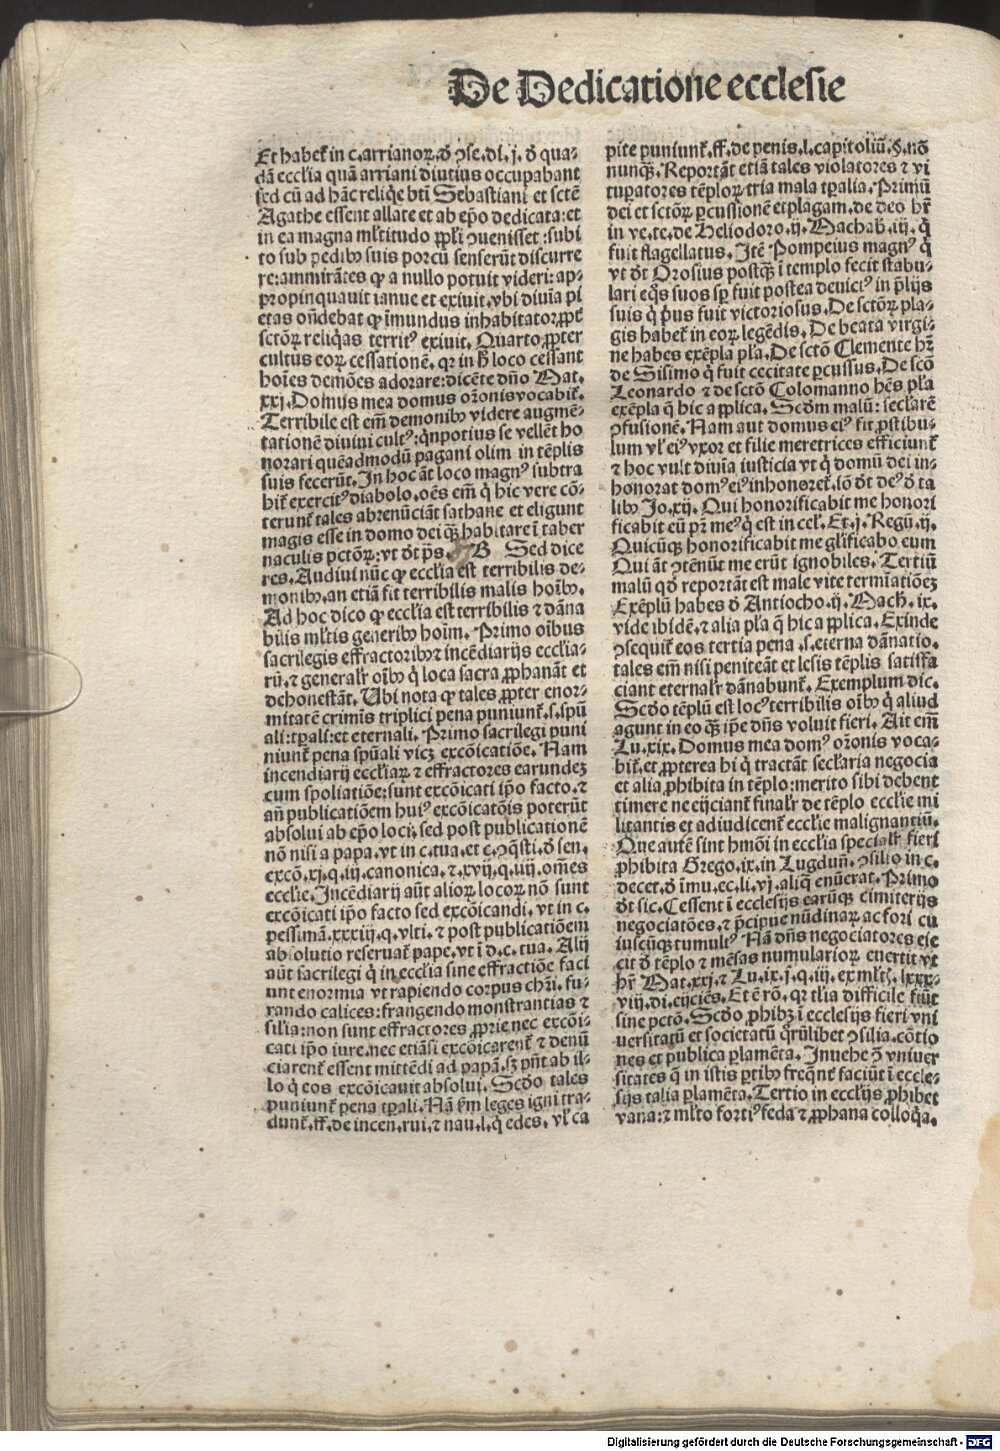 De Dedicatione ecclesie
Et habeť in c. arrianoꝝ. ð ꝯse. di. j. ð qua-
dã ecclia quã arriani diutius occupabant
sed cũ ad hãc reliqẽ bti Sebastiani et sctẽ
Agathe essent allate et ab epo dedicata: et
in ea magna mltitudo ppli ꝯuenisset: subi
to sub pedibꝰ suis porcũ senserũt discurre
re: ammirãtes ꝙ a nullo potuit videri: ap-
propinquauit ianue et exiuit. vbi diuia pi
etas oñdebat ꝙ ĩmundus inhabitatoꝛ ꝓpť
sctõꝝ reliqas territꝰ exiuit. Quarto ꝓpter
cultus eoꝝ cessationẽ. qꝛ in h loco cessant
hoĩes demões adorare: dicẽte dño Mat.
xxj. Domus mea domus oꝛonis vocabiť.
Terribile est em̃ demonibꝰ videre augmẽ-
tationẽ diuini cultꝰ: qñpotius se vellẽt ho
norari quẽadmodũ pagani olim in tẽplis
suis fecerũt. In hoc ãt loco magnꝰ subtra
hiť exercitꝰ diabolo. oẽs em̃ q hic vere cõ-
terunť tales abrenũciãt sathane et eligunt
magis esse in domo dei ꝙ̃ habitare ĩ taber
naculis pctõꝝ: vt ðt ps. B Sed dice
res. Audiui nũc ꝙ ecclia est terribilis de-
monibꝰ. an etiã fit terribilis malis hoĩbꝰ.
Ad hoc dico ꝙ ecclia est terribilis ⁊ dãna
bilis mltis generibꝰ hoĩm. Primo oĩbus
sacrilegis effractoribꝰ⁊ incẽdiarijs ecclia-
rũ. ⁊ generalr oĩbꝰ q loca sacra ꝓphanãt et
dehonestãt. Ubi nota ꝙ tales ꝓpter enor-
mitatẽ crimis triplici pena puniunť. s. spũ
ali: tꝑali: et eternali. Primo sacrilegi puni
niunť pena spũali vicꝫ excõicatiõe. Nam
incendiarij eccliaꝝ ⁊ effractores earundeꝫ
cum spoliatiõe: sunt excõicati ipo facto. ⁊
añ publicatiõem huiꝰ excõicatõis poterũt
absolui ab epo loci. sed post publicationẽ
nõ nisi a papa. vt in c. tua. et c. ꝯq̃sti. ð sen.
excõ. xj. q. iij. canonica. ⁊. xvij. q. iiij. om̃es
ecclie. Incẽdiarij aũt alioꝝ locoꝝ nõ sunt
excõicati ipo facto sed excõicandi. vt in c.
pessimã. xxxiij. q. vlti. ⁊ post publicatiõem
absolutio reseruať pape. vt ĩ d. c. tua. Alij
aũt sacrilegi q in ecclia sine effractiõe faci
unt enormia vt rapiendo corpus chri. fu-
rando calices: frangendo monstrantias ⁊
silia: non sunt effractores ꝓprie nec excõi-
cati ipo iure. nec etiãsi excõicarenť ⁊ denũ
ciarenť essent mittẽdi ad papã. sꝫ pñt ab il-
lo q eos excõicauit absolui. Scðo tales
puniunť pena tꝑali. Nã ẽm leges igni tra-
dunť. ff. de incen. rui. ⁊ nau. l. q edes. vl ca
pite puniunť. ff. de penis. l. capitoliũ. §. nõ
nunqꝫ. Reportãt etiã tales violatores ⁊ vi
tuꝑatores tẽploꝝ tria mala tꝑalia. Primũ
dei et sctõꝝ ꝑcussionẽ et plagam. de deo hr
in ve. te. de Heliodoro. ij. Machab. iij. q
fuit flagellatus. Itẽ Pompeius magnꝰ q
vt ðt Orosius postqꝫ ĩ templo fecit stabu-
lari eqs suos sp fuit postea deuictꝰ in plijs
suis q pus fuit victoriosus. De sctõꝝ pla-
gis habeť in eoꝝ legẽdis. De beata virgi-
ne habes exẽpla pla. De sctõ Clemente hr
de Sisimo q fuit cecitate ꝑcussus. De scõ
Leonardo ⁊ de sctõ Colomanno hẽs pla
exẽpla q hic applica. Scðm malũ: seclarẽ
ꝯfusionẽ. Nam aut domus eiꝰ fit ꝓstibu-
lum vl eiꝰ vxor et filie meretrices efficiunť
⁊ hoc vult diuia iusticia vt q domũ dei in-
honorat domꝰ eiꝰ inhonoreť. iõ ðt deꝰ ð ta
libꝰ Jo. xij. Qui honorificabit me honori
ficabit eũ pr meꝰ q est in cel. Et. j. Regũ. ij.
Quicũqꝫ honorificabit me glificabo eum
Qui ãt ꝯtẽnũt me erũt ignobiles. Tertiũ
malũ qð reportãt est male vite termiatiõeꝫ
Exẽplũ habes ð Antiocho. ij. Mach. ix.
vide ibidẽ. ⁊ alia pla q hic applica. Exinde
ꝯsequiť eos tertia pena .s. eterna dãnatio.
tales em̃ nisi peniteãt et lesis tẽplis satisfa
ciant eternalr dãnabunť. Exemplum dic.
Scðo tẽplũ est locꝰ terribilis oĩbꝰ q aliud
agunt in eo qꝫ ipe dñs voluit fieri. Ait em̃
Lu. xix. Domus mea domꝰ oꝛonis voca-
biť. et ꝓpterea hi q tractãt seclaria negocia
et alia ꝓhibita in tẽplo: merito sibi debent
timere ne eijcianť finalr de tẽplo ecclie mi
litantis et adiudicenť ecclie malignantiũ.
Que autẽ sint hmõi in ecclia specialr fieri
ꝓhibita Grego. ix. in Lugduñ. ꝯsilio in c.
decet. ð ĩmu. ec. li. vj. aliq enũerat. Primo
ðt sic. Cessent ĩ ecclesijs earũqꝫ cimiterijs
negociatões. ⁊ pcipue nũdinaꝝ ac fori cu
iuscũqꝫ tumultꝰ Nã dñs negociatores eie
cit ð tẽplo ⁊ mẽsas numularioꝝ euertit vt
hr Mat. xxj. ⁊ Lu. ix. j. q. iij. ex mltꝫ. lxxx-
viij. di. eijciẽs. Et ẽ rõ. qꝛ tlia difficile fiũt
sine pctõ. Scðo ꝓhibꝫ ĩ ecclesijs fieri vni
uersitatũ et societatũ qrũlibet ꝯsilia. cõtio
nes et publica ꝑlamẽta. Inuehe ꝯ̃ vniuer
sitates q in istis ꝑtibꝰ freqnť faciũt ĩ eccle-
sijs talia ꝑlamẽta. Tertio in ecclijs ꝓhibet
vana: ⁊ mlto fortiꝰ feda ⁊ ꝓphana colloqa.
Digitalisierung gefördert durch die Deutsche Forschungsgemeinschaft - DFG